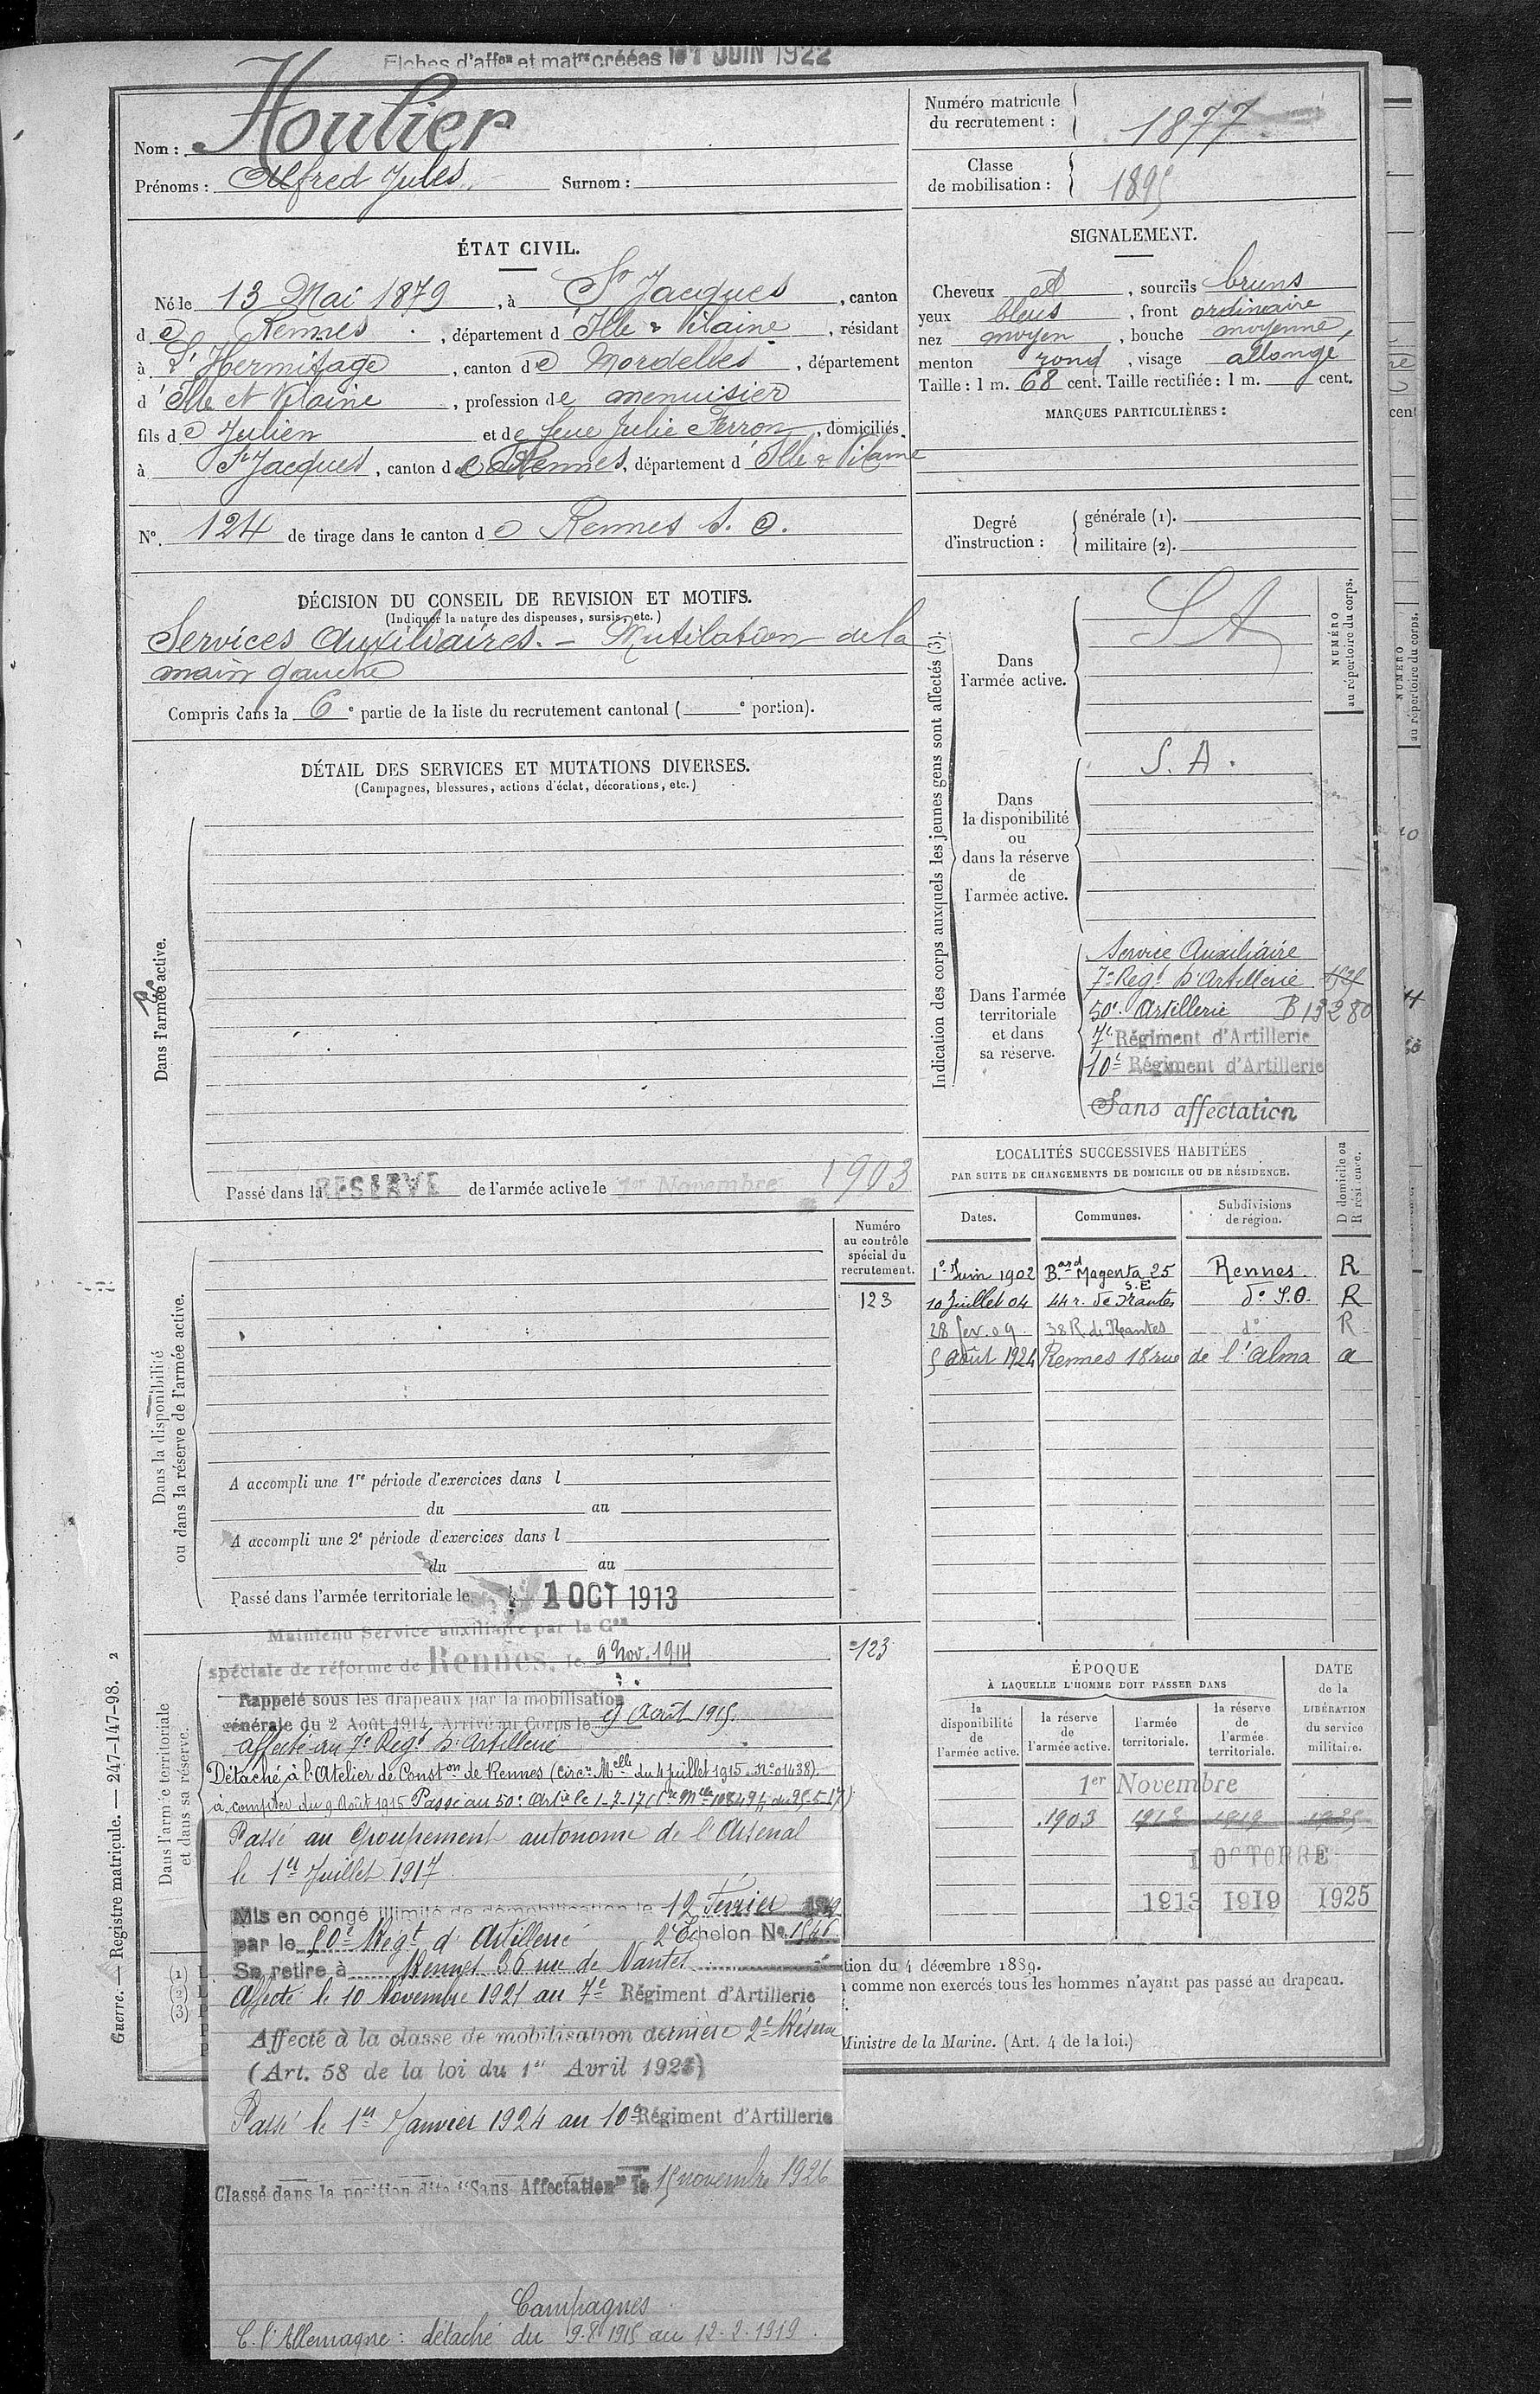 Fiches d'affon et matre créées le 1 JUIN 1922
Nom : Houlier
Prénoms : Alfred Jules Surnom :
Numéro matricule du recrutement : 1877
Classe de mobilisation : 1895
ÉTAT CIVIL.
Né le 13 Mai 1879, à St Jacques, canton
de Rennes, département d'Ille & Vilaine, résidant
à L'Hermitage, canton de Mordelles, département
d'Ille et Vilaine, profession de menuisier
fils de Julien et de feue Julie Ferron, domiciliés
à St Jacques, canton de Rennes, département d'Ille & Vilaine
N° 124 de tirage dans le canton de Rennes S. O.
SIGNALEMENT.
Cheveux et, sourcils bruns
yeux bleus, front ordinaire
nez moyen, bouche moyenne,
menton rond, visage allongé
Taille : 1 m. 68 cent. Taille rectifiée : 1 m. cent.
MARQUES PARTICULIÈRES :
Degré d'instruction : générale (1).
militaire (2).
DÉCISION DU CONSEIL DE REVISION ET MOTIFS.
(Indiquer la nature des dispenses, sursis, etc.)
Services Auxiliaires. - Mutilation de la
main gauche
Compris dans la 6e partie de la liste du recrutement cantonal ( e portion).
DÉTAIL DES SERVICES ET MUTATIONS DIVERSES.
(Campagnes, blessures, actions d'éclat, décorations, etc.)
Dans l'armée active.
Passé dans la RESERVE de l'armée active le 1er Novembre 1903
Indication des corps auxquels les jeunes gens sont affectés (3).
NUMÉRO au répertoire du corps.
Dans l'armée active.
SA
Dans la disponibilité ou dans la réserve de l'armée active.
S. A.
Dans l'armée territoriale et dans sa réserve.
Service Auxiliaire
7e Regt d'Artillerie
50e Artillerie B 13280
7e Régiment d'Artillerie
10e Régiment d'Artillerie
Sans affectation
LOCALITÉS SUCCESSIVES HABITÉES
PAR SUITE DE CHANGEMENTS DE DOMICILE OU DE RÉSIDENCE.
D domicile ou R résidence.
Dates. Communes. Subdivisions de région.
1er Juin 1902 Bard Magenta 25 S.E Rennes. R
10 Juillet 04 44 r. de Nantes do S.O. R
28 fev. 09 38 R. de Nantes do R
5 Août 1924 Rennes 18 rue de l'Alma a
Numéro au contrôle spécial du recrutement.
123
Dans la disponibilité ou dans la réserve de l'armée active.
A accompli une 1re période d'exercices dans l
du au
A accompli une 2e période d'exercices dans l
du au
Passé dans l'armée territoriale le 1 OCT 1913
Dans l'armée territoriale et dans sa réserve.
Maintenu Service auxiliaire par la Con
spéciale de réforme de Rennes, le 9 Nov. 1914
123
Rappelé sous les drapeaux par la mobilisation
générale du 2 Août 1914. Arrivé au Corps le 9 Août 1915
Affecté au 7e Regt d'Artillerie
Détaché à l'Atelier de Conston de Rennes (circre Melle du 4 Juillet 1915 No 01438)
à compter du 9 Août 1915. Passé au 50e Artie le 1-7-17
Passé au Groupement autonome de l'Arsenal
le 1er Juillet 1917.
Mis en congé illimité de démobilisation le 12 Février 1919
par le 50e Régt d'Artillerie 2e Echelon No 1546
Se retire à Rennes 36 rue de Nantes
Affecté le 10 Novembre 1921 au 7e Régiment d'Artillerie
Affecté à la classe de mobilisation dernière 2e Réserve
(Art. 58 de la loi du 1er Avril 1923)
Passé le 1er Janvier 1924 au 10e Régiment d'Artillerie
Classé dans la position dite "Sans Affectation" le 15 novembre 1926
Campagnes
C. l'Allemagne : détaché du 9.8.1915 au 12.2.1919.
ÉPOQUE
À LAQUELLE L'HOMME DOIT PASSER DANS
la disponibilité de l'armée active.
la réserve de l'armée active.
l'armée territoriale.
la réserve de l'armée territoriale.
DATE de la LIBÉRATION du service militaire.
1er Novembre
1903 1913 1919 1925
1 OCTOBRE
1913 1919 1925
tion du 4 décembre 1889.
comme non exercés tous les hommes n'ayant pas passé au drapeau.
Ministre de la Marine. (Art. 4 de la loi.)
Guerre. — Registre matricule. — 247-147-98. 2